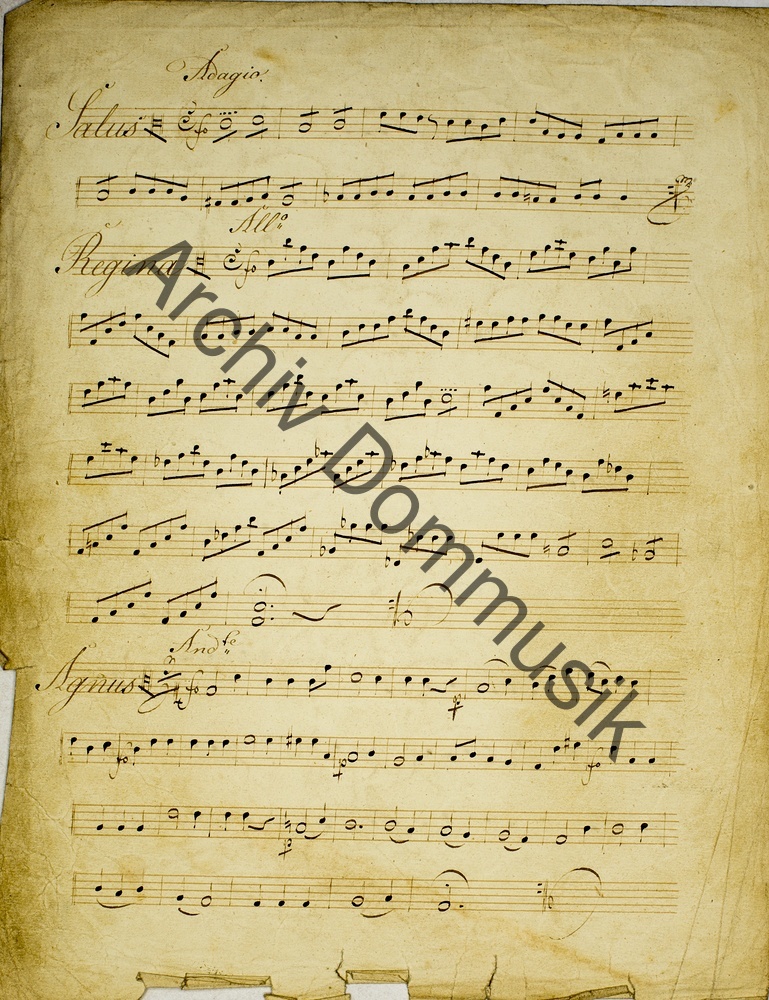 Adagio.
Salus
fo
All.o
Regina
fo
And.te
Agnus
fo
p
fo
p
fo
p
Archiv Dommusik